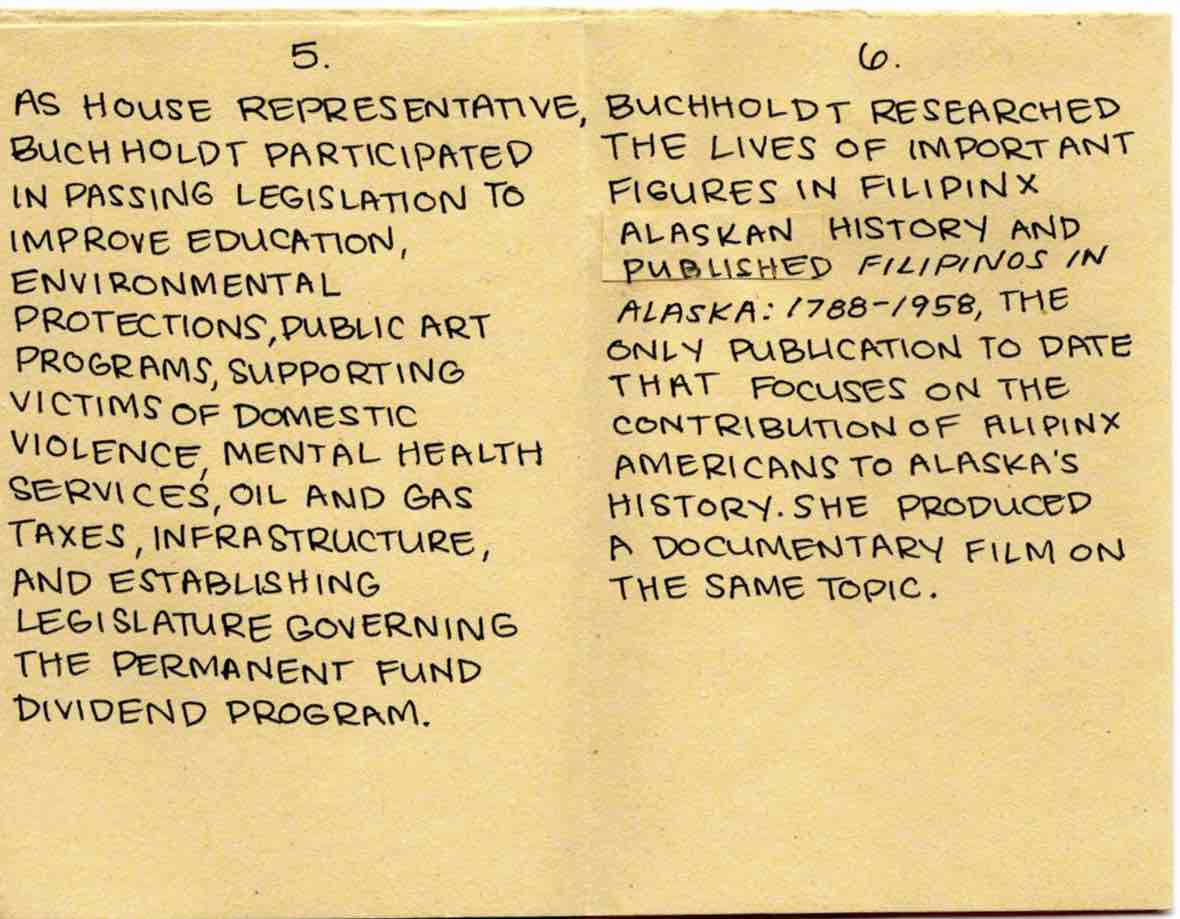 5.
AS HOUSE REPRESENTATIVE,
BUCHHOLDT PARTICIPATED
IN PASSING LEGISLATION TO
IMPROVE EDUCATION,
ENVIRONMENTAL
PROTECTIONS, PUBLIC ART
PROGRAMS, SUPPORTING
VICTIMS OF DOMESTIC
VIOLENCE, MENTAL HEALTH
SERVICES, OIL AND GAS
TAXES, INFRASTRUCTURE,
AND ESTABLISHING
LEGISLATURE GOVERNING
THE PERMANENT FUND
DIVIDEND PROGRAM.
6.
BUCHHOLDT RESEARCHED
THE LIVES OF IMPORTANT
FIGURES IN FILIPINX
ALASKAN HISTORY AND
PUBLISHED FILIPINOS IN
ALASKA: 1788-1958, THE
ONLY PUBLICATION TO DATE
THAT FOCUSES ON THE
CONTRIBUTION OF FILIPINX
AMERICANS TO ALASKA'S
HISTORY. SHE PRODUCED
A DOCUMENTARY FILM ON
THE SAME TOPIC.